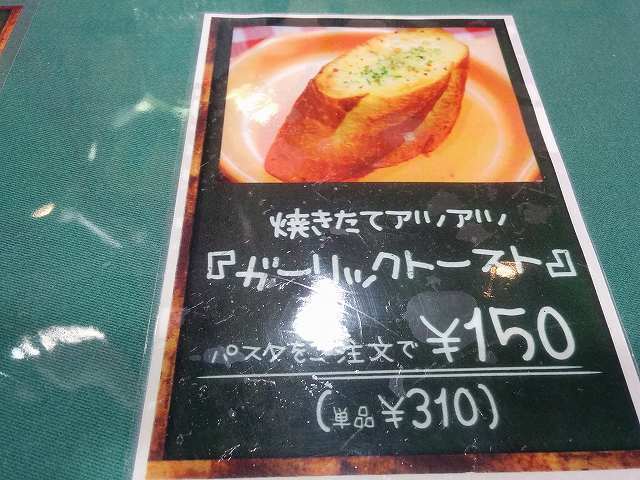 焼きたてアツアツ
『ガーリックトースト』
パスタをご注文で ¥150
(単品 ¥310)